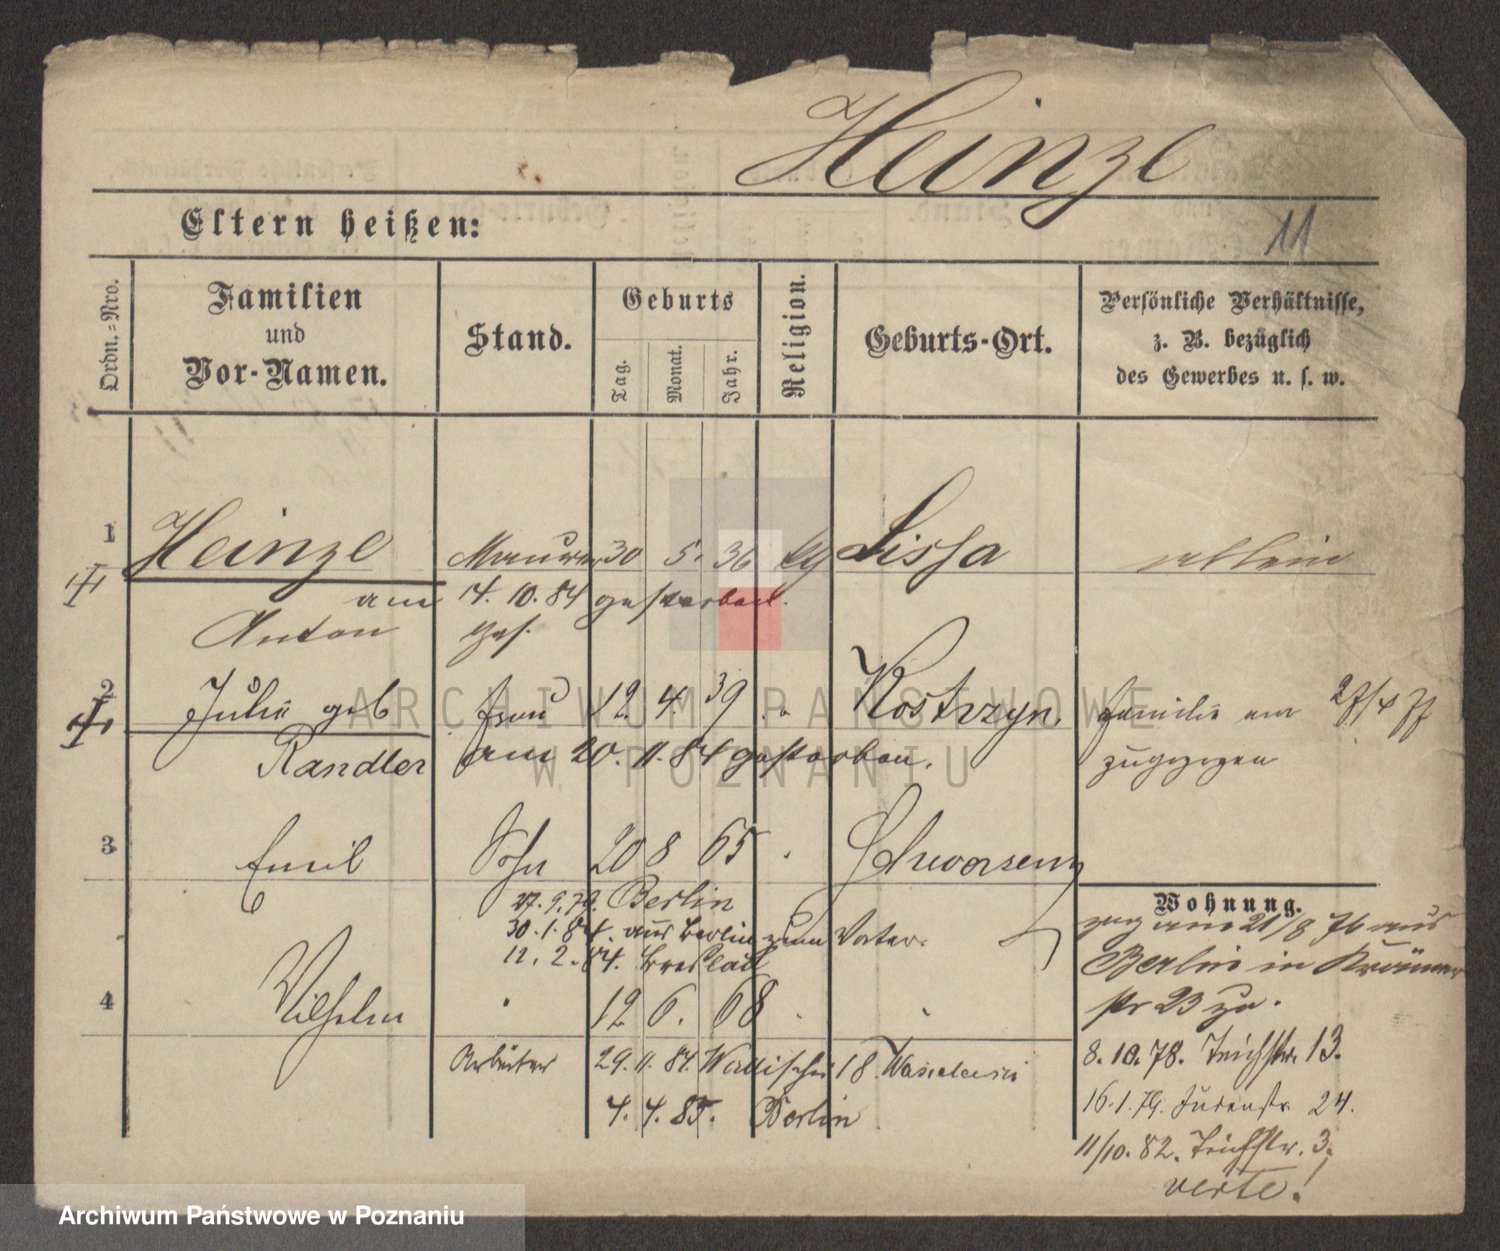 Heinze
Eltern heißen:
11
Ordn.=Nro.
Familien
und
Vor-Namen.
Stand.
Geburts
Tag.
Monat.
Jahr.
Religion.
Geburts-Ort.
Persönliche Verhältnisse,
z. B. bezüglich
des Gewerbes u. s. w.
1 Heinze Maurer 30 5. 36 kg Lissa allein
am 14. 10. 84 gestorben.
Anton ges.
2 Julie geb Frau 12. 4. 39 " Kostrzyn. Familie am 27/4 77
Randler am 20. 11. 84 gestorben. zugezogen
3 Emil Sohn 20 8 65 " Schwersenz
27. 9. 79. Berlin
30. 1. 84. aus Berlin zum Vater.
12. 2. 84. Breslau
4 Wilhelm " 12 6. 68 " "
Arbeiter 29. 11. 84. Wallischei 18.
4. 4. 85. Berlin
Wohnung.
zug am 21/8 76 aus
Berlin in Krämer
str 23 zu.
8. 10. 78. Teichstr. 13.
16. 1. 79. Judenstr. 24.
11/10. 82. Teichstr. 3.
verte!
ARCHIWUM PAŃSTWOWE
W POZNANIU
Archiwum Państwowe w Poznaniu